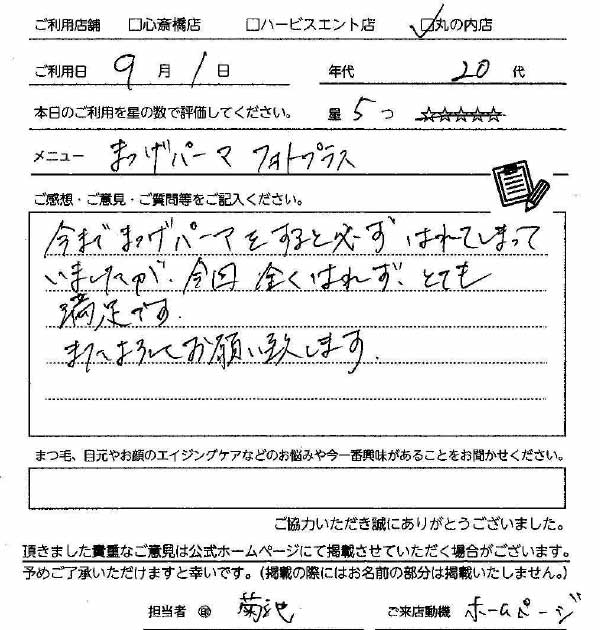 ご利用店舗 □心斎橋店 □ハービスエント店 ☑丸の内店
ご利用日 9月1日 年代 20代
本日のご利用を星の数で評価してください。 星5つ ☆☆☆☆☆
メニュー まつげパーマ フォトプラス
ご感想・ご意見・ご質問等をご記入ください。
今まで まつげパーマをすると必ず はれてしまって
いましたが、今回 全くはれず、とても
満足です。
またよろしくお願い致します。
まつ毛、目元やお顔のエイジングケアなどのお悩みや今一番興味があることをお聞かせください。
ご協力いただき誠にありがとうございました。
頂きました貴重なご意見は公式ホームページにて掲載させていただく場合がございます。
予めご了承いただけますと幸いです。(掲載の際にはお名前の部分は掲載いたしません。)
担当者 菊池 ご来店動機 ホームページ